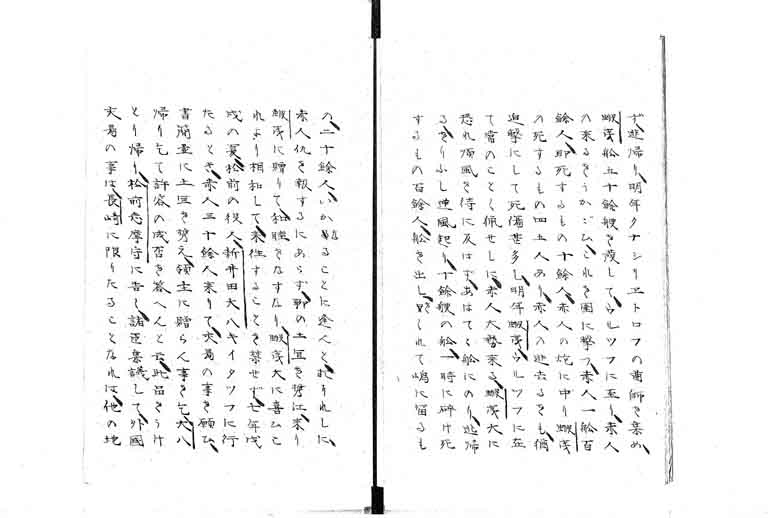 ず逃帰り明年クナシリヱトロフの酋師を集め
蝦夷船五十餘艘を浚してウルツフに至り赤人
の来るをうかゞひこれを囲に撃つ赤人一船百
餘人即死するもの十餘人赤人の炮に中り蝦夷
の死するもの四五人あり赤人の逃去るをも猶
追撃にして死傷甚多し明年蝦夷ウルツフに在
て常のことく佩せしに赤人大勢来る蝦夷大に
恐れ順風を待に及はずあはてゝ船にのり逃帰
るをりふし逆風起り十餘艘の船一時に砕け死
するもの百餘人船を出しをくれて嶋に留るも
の二十餘人いかなることに逢人とおそれしに
赤人仇を報するにあらず郡の土宜を携江来り
蝦夷に贈りて和睦をなすなり蝦夷大に喜ひこ
れより相和して来往することを禁せず七年戌
戌の夏松前の役人新井田大八キイタツフに行
たるとき赤人三十餘人来りて交易の事を願ひ
書簡並に土宜を携え領主に贈らん事を乞大八
帰り乞て許容の成否を答へんと云此品をうけ
とり帰り松前志摩守に告く諸臣集議して外國
交易の事は長崎に限りたることなれは他の地